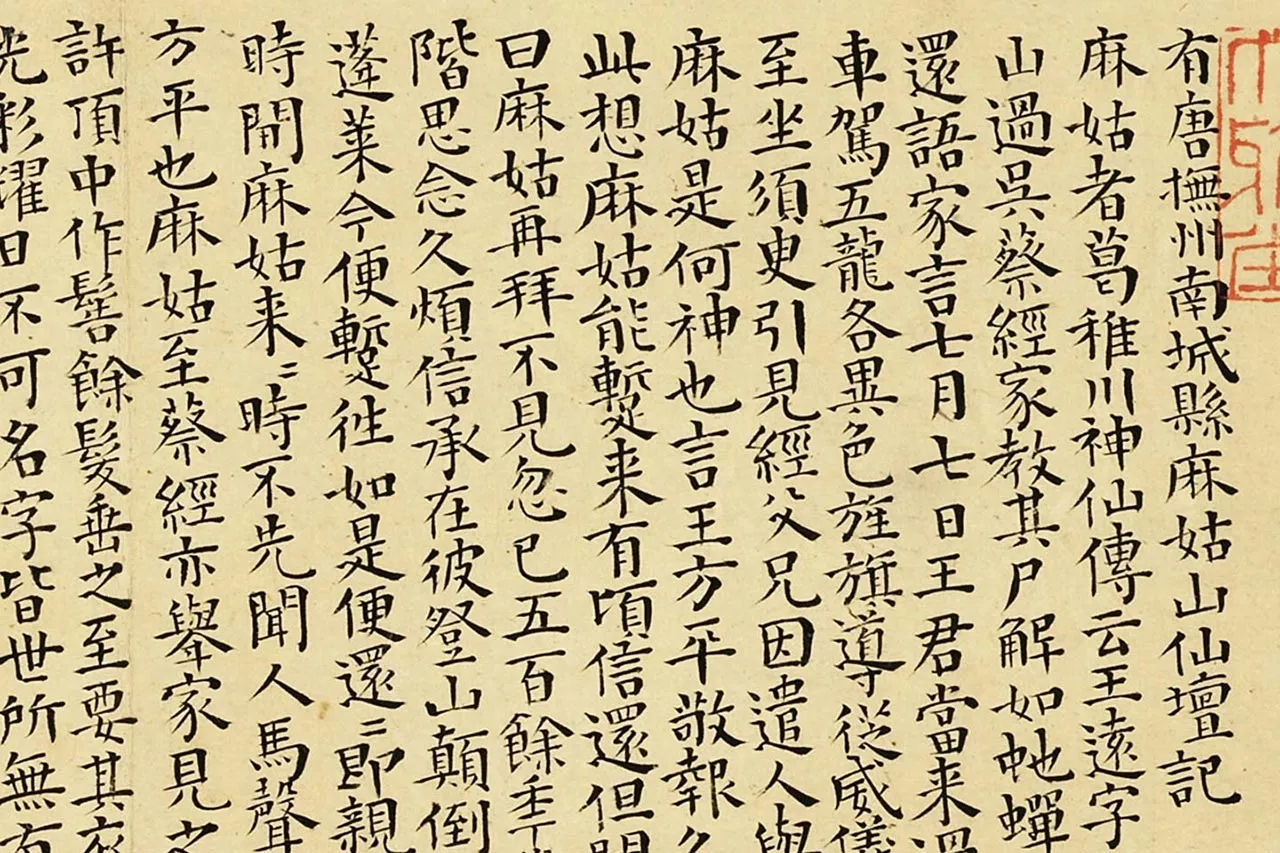 有唐撫州南城縣麻姑山仙壇記
麻姑者葛稚川神仙傳云王遠字
山過吳蔡經家教其尸解如虵蟬
還語家言七月七日王君當来過
車駕五龍各異色旌旗導從威儀
至坐須臾引見經父兄因遣人與
麻姑是何神也言王方平敬報久
此想麻姑能蹔来有頃信還但聞
曰麻姑再拜不見忽已五百餘年
階思念久煩信承在彼登山顛倒
蓬莱今便蹔徃如是便還〻即親
時間麻姑来〻時不先聞人馬聲
方平也麻姑至蔡經亦舉家見之
許頂中作髻餘髮垂之至要其衣
光彩耀日不可名字皆世所無有